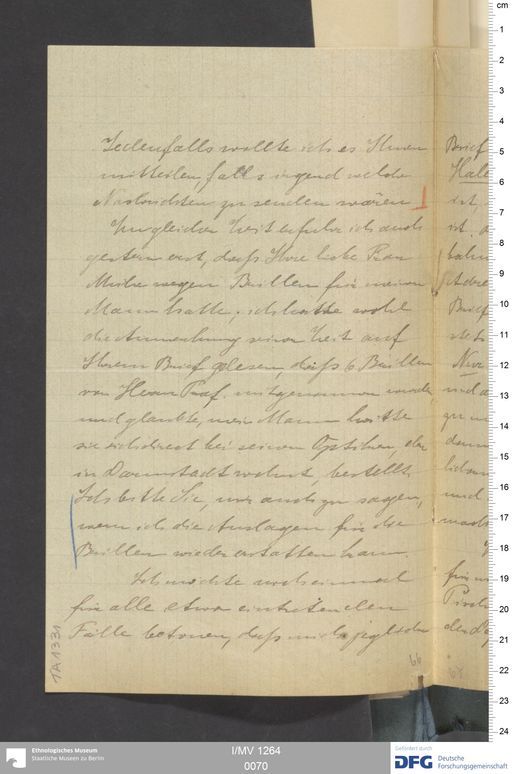 Jedenfalls wollte ich es Ihnen
mitteilen, falls irgend welche
Nachrichten zu senden wären
Zur gleichen Zeit erfuhr ich auch
gestern erst, daß Ihre liebe Frau
Mühe wegen Brillen für meinen
Mann hatte; ich hatte wohl
die Anmerkung seiner Zeit auf
Ihrem Brief gelesen daß 6 Brillen
von Herrn Prof. mitgenommen wurden
und glaubte, mein Mann hätte
sie sich direct bei seinem Optiker, der
in Darmstadt wohnt, bestellt.
Ich bitte Sie, mir auch zu sagen,
wem ich die Auslagen für die
Brillen wieder erstatten kann.
Ich möchte noch einmal
für alle etwa eintretenden
Fälle betonen, daß mich jegliche
Brief
Hale
ist
ist
Adre
Brief
Nur
und
für
der
66
TA 1331
cm
1
2
3
4
5
6
7
8
9
10
11
12
13
14
15
16
17
18
19
20
21
22
23
24
Ethnologisches Museum
Staatliche Museen zu Berlin
I/MV 1264
0070
Gefördert durch
DFG Deutsche
Forschungsgemeinschaft